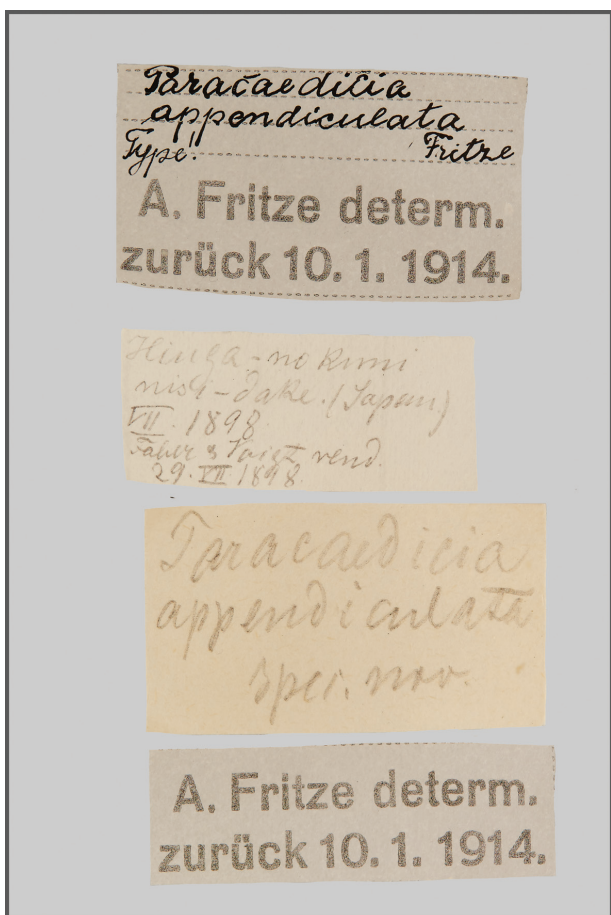 Paracaedicia
appendiculata
Type! Fritze
A. Fritze determ.
zurück 10. 1. 1914.
Hiuga-no Kuni
nisi-dake. (Japan)
VII. 1898.
Faber & Voigt vend.
29. XII. 1898.
Paracaedicia
appendiculata
spec. nov.
A. Fritze determ.
zurück 10. 1. 1914.